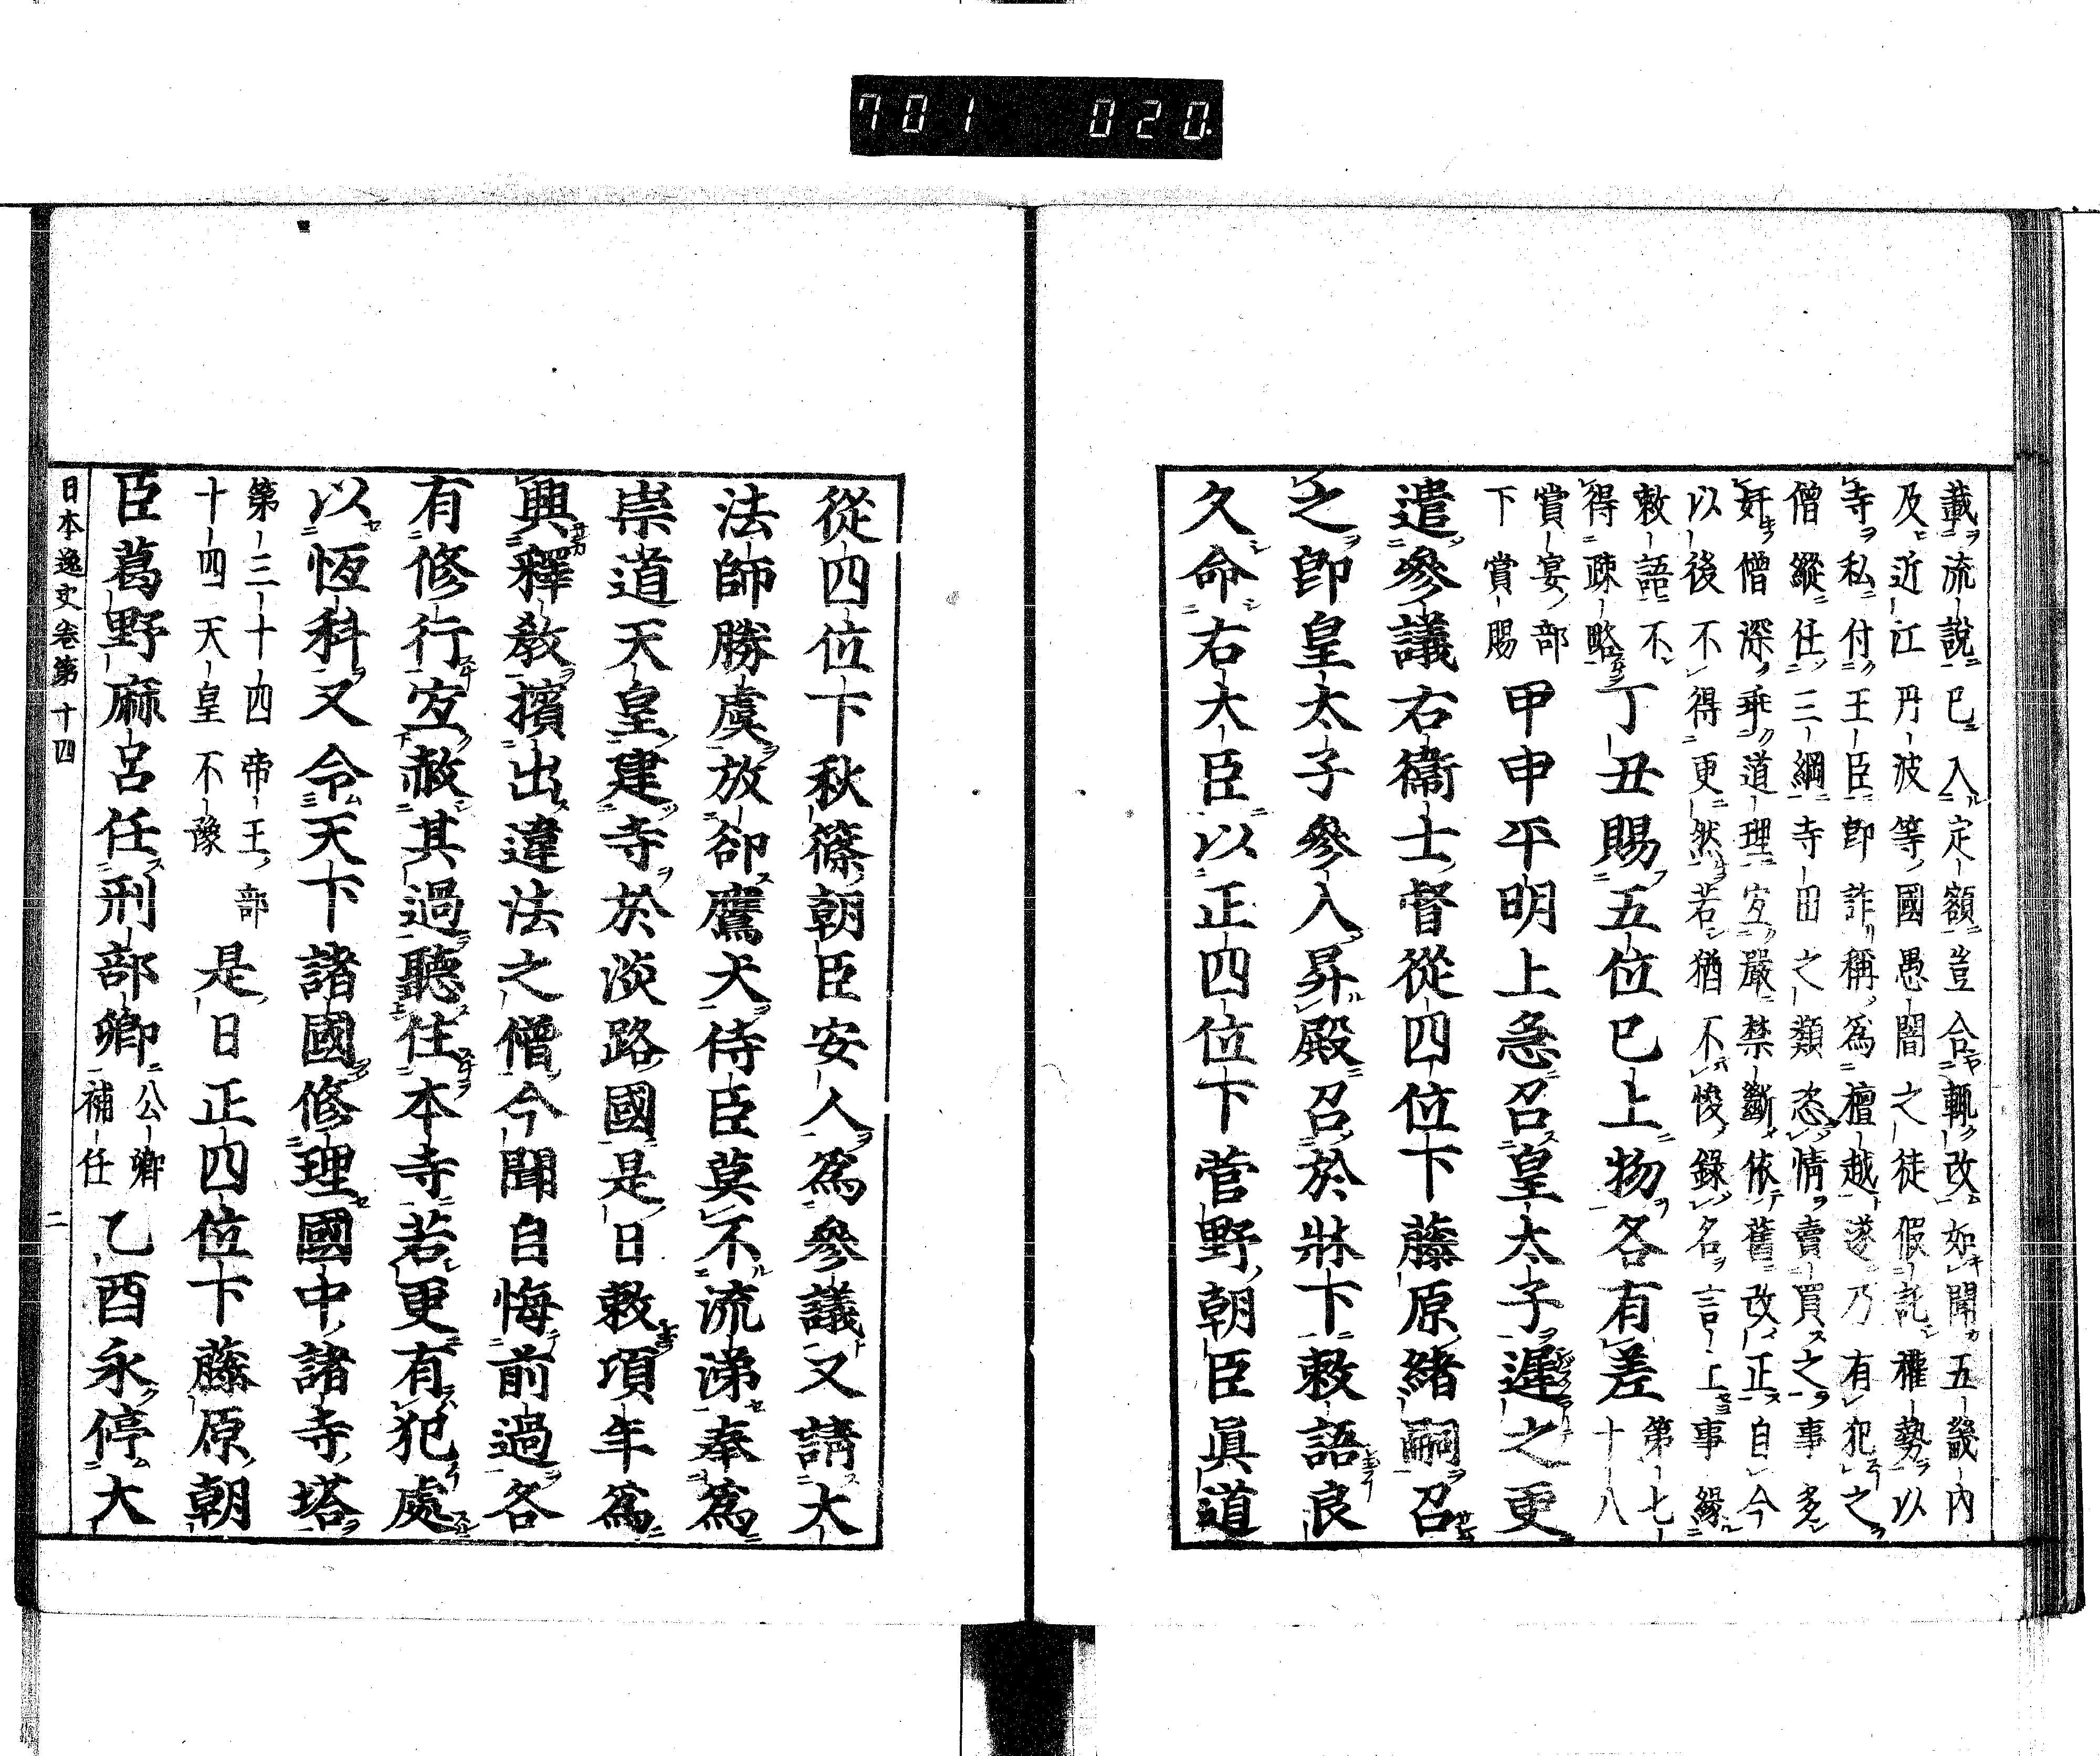 701 020
載流說已入定額豈合輒改如聞五畿內
及近江丹波等國愚闇之徒假託權勢以
寺私付王臣卽詐稱爲檀越遂乃有犯之
僧縱任三綱寺田之類恣情賣買之事多
奸僧深乖道理宜嚴禁斷依舊改正自今
以後不得更然若猶不悛錄名言上事緣
敕語不
得疎略
丁丑賜五位已上物各有差
第七
十八
賞宴部
下賞賜
甲申平明上急召皇太子遲之更
遣參議右衞士督從四位下藤原緖嗣召
之卽皇太子參入昇殿召於牀下敕語良
久命右大臣以正四位下菅野朝臣眞道
從四位下秋篠朝臣安人爲參議又請大
法師勝虞放卻鷹犬侍臣莫不流涕奉爲
崇道天皇建寺於淡路國是日敕頃年爲
興釋敎擯出違法之僧今聞自悔前過各
有修行宜赦其過聽住本寺若更有犯處
以恆科又令天下諸國修理國中諸寺塔
第三十四帝王部
十四天皇不豫
是日正四位下藤原朝
臣葛野麻呂任刑部卿
公卿
補任
乙酉永停大
日本逸史卷第十四 二